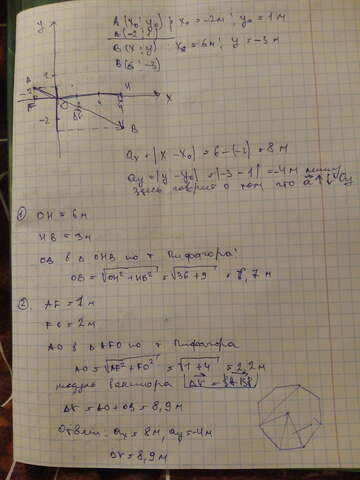 A (x₀; y₀); x₀ = -2м; y₀ = 1 м
A (-2; 1)
B (x; y) x₀ = 6м; y = -3 м
B (6; -3)
y
1
-2
2
4
H
x
F
0
-2
B
aₓ = |x - x₀| = 6 - (-2) = 8 м
ay = |y - y₀| = |-3 - 1| = -4м минус
здесь говорит о том что a↑↓Oy
① OH = 6м
HB = 3м
OB в Δ OHB по т Пифагора:
OB = √OH² + HB² = √36 + 9 = 6,7 м
2. AF = 1м
FO = 2м
AO в Δ AFO по т Пифагора
AO = √AF² + FO² = √1 + 4 = 2,2м
модуль вектора
Δr = AO + OB = 8,9м
Ответ: aₓ = 8м, ay = -4м
Δr = 8,9м